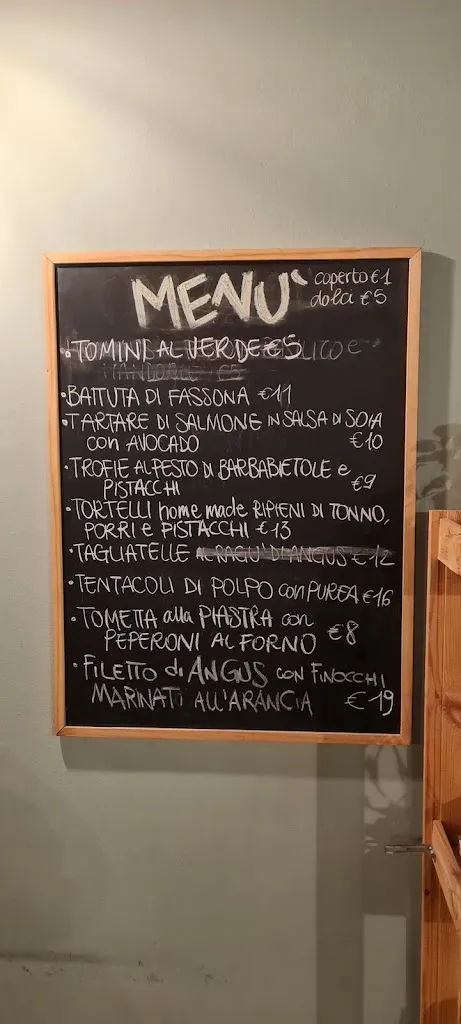 MENU'
coperto €1
dolci €5
• TOMINI AL VERDE €5
• BATTUTA DI FASSONA €11
• TARTARE DI SALMONE IN SALSA DI SOIA
con AVOCADO €10
• TROFIE AL PESTO DI BARBABIETOLE e
PISTACCHI €9
• TORTELLI home made RIPIENI DI TONNO,
PORRI e PISTACCHI €13
• TAGLIATELLE AL RAGU' DI ANGUS €12
• TENTACOLI DI POLPO con PUREA €16
• TOMETTA alla PIASTRA con
PEPERONI AL FORNO €8
• FILETTO di ANGUS CON FINOCCHI
MARINATI ALL'ARANCIA €19